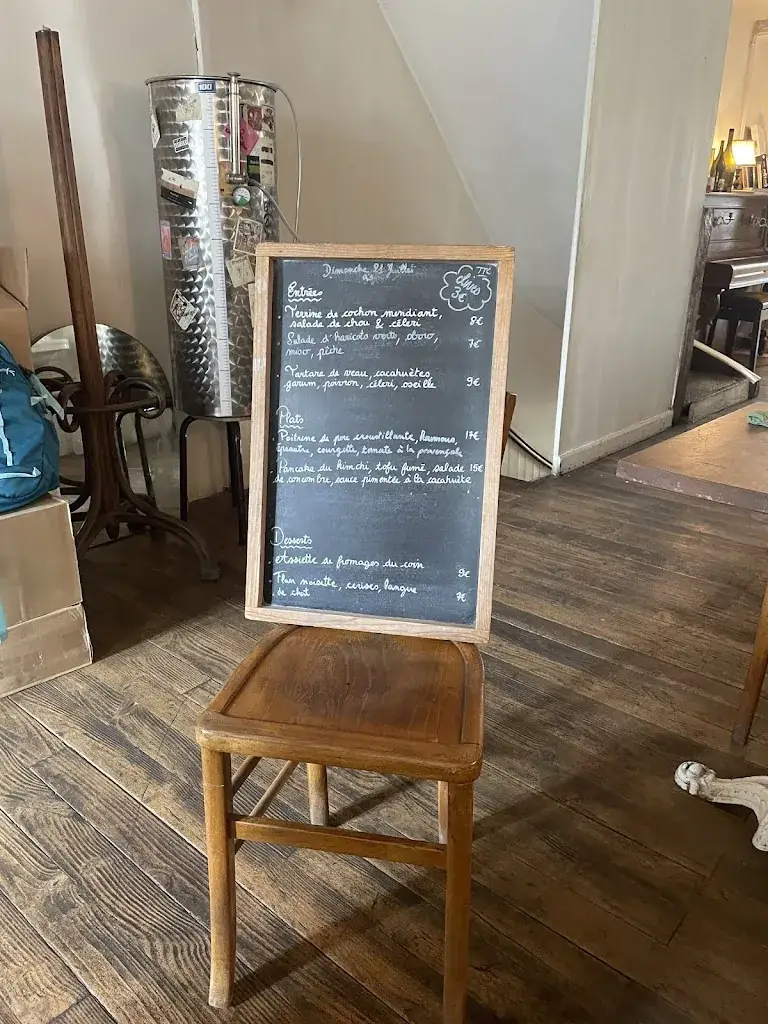 Dimanche 21 Juillet
Entrées
. Terrine de cochon mendiant,
salade de chou & céleri 8€
. Salade d'haricots verts,
miso, pêche 7€
. Tartare de veau, cacahuètes,
garum, poivron, céleri, oseille 9€
Plats
Poitrine de porc croustillante, houmous, 17€
épeautre, courgette, tomate à la provençale
. Pancake du kimchi, tofu fumé, salade 15€
de concombre, sauce pimentée à la cacahuète
Desserts
. Assiette de fromages du coin
9€
. Flan noisette, cerises, langue
de chat 7€
3€
100